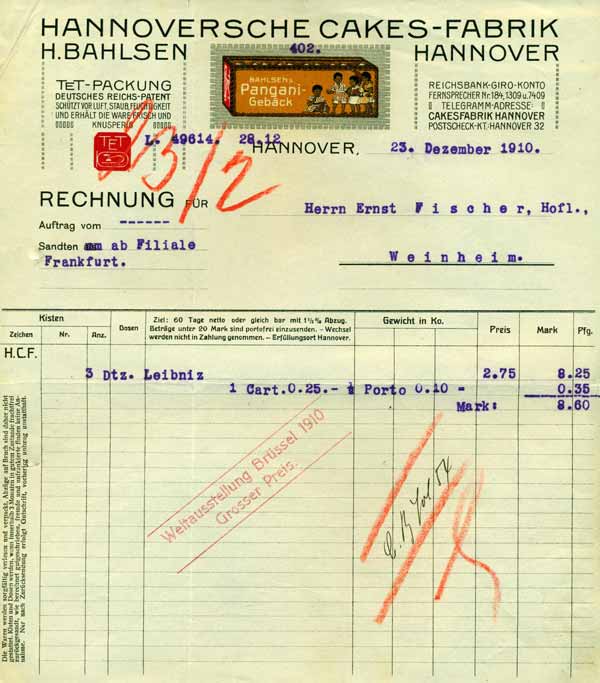 HANNOVERSCHE CAKES-FABRIK
H. BAHLSEN
HANNOVER
402.
BAHLSENs
Pangani-
Gebäck
TET-PACKUNG
DEUTSCHES REICHS-PATENT
SCHÜTZT VOR LUFT, STAUB, FEUCHTIGKEIT
UND ERHÄLT DIE WARE FRISCH UND
KNUSPERIG
TET
REICHSBANK-GIRO-KONTO
FERNSPRECHER Nr. 184, 1309 u. 7409
TELEGRAMM-ADRESSE:
CAKESFABRIK HANNOVER
POSTSCHECK-KT. HANNOVER 32
L. 49614. 28.12
HANNOVER, 23. Dezember 1910.
23/12
RECHNUNG FÜR
Herrn Ernst Fischer, Hofl.,
Auftrag vom ------
Sandten ab Filiale
Frankfurt.
Weinheim.
Kisten
Zeichen Nr. Anz. Dosen
Ziel: 60 Tage netto oder gleich bar mit 1½% Abzug.
Beträge unter 20 Mark sind portofrei einzusenden. – Wechsel
werden nicht in Zahlung genommen. – Erfüllungsort Hannover.
Gewicht in Ko. Preis Mark Pfg.
H.C.F.
3 Dtz. Leibniz 2.75 8.25
1 Cart. 0.25.- ½ Porto 0.10 = 0.35
Mark: 8.60
Weltausstellung Brüssel 1910
Grosser Preis.
Die Waren werden sorgfältig verlesen und verpackt. Abzüge auf Bruch sind daher nicht
gestattet. Kisten und Dosen werden, wenn innerhalb 3 Monaten in gutem Zustande frachtfrei
zurückgesandt, wie berechnet gutgeschrieben, fremde und unfrankierte finden keine An-
nahme. Nur nach Zurücksendung erfolgt Gutschrift, vorherig abzug unstatthaft.